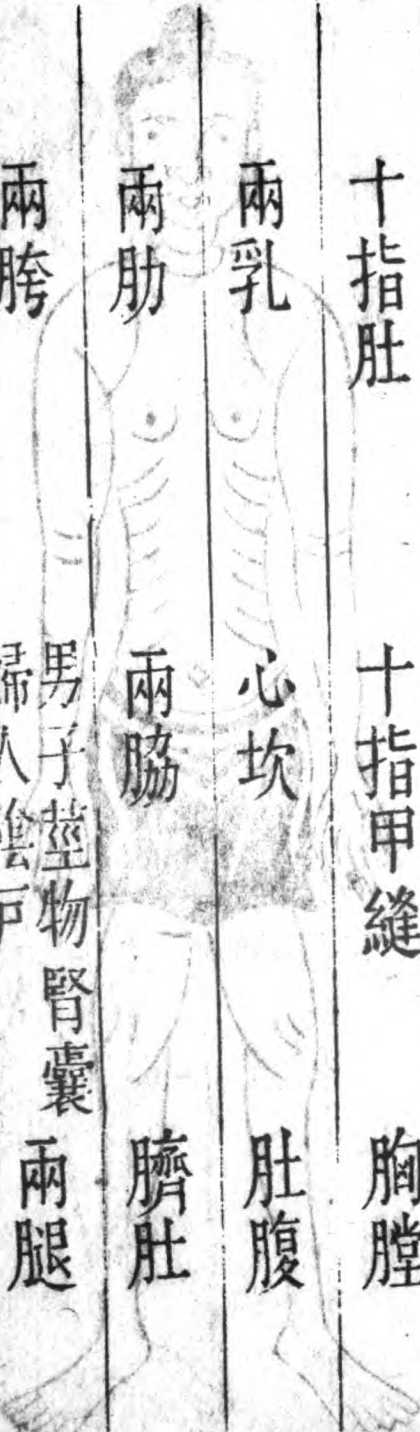 十指肚　十指甲縫　胸膛
兩乳　心坎　肚腹
兩肋　兩脇　臍肚
兩胯　男子莖物腎囊　兩腿
婦人陰戶